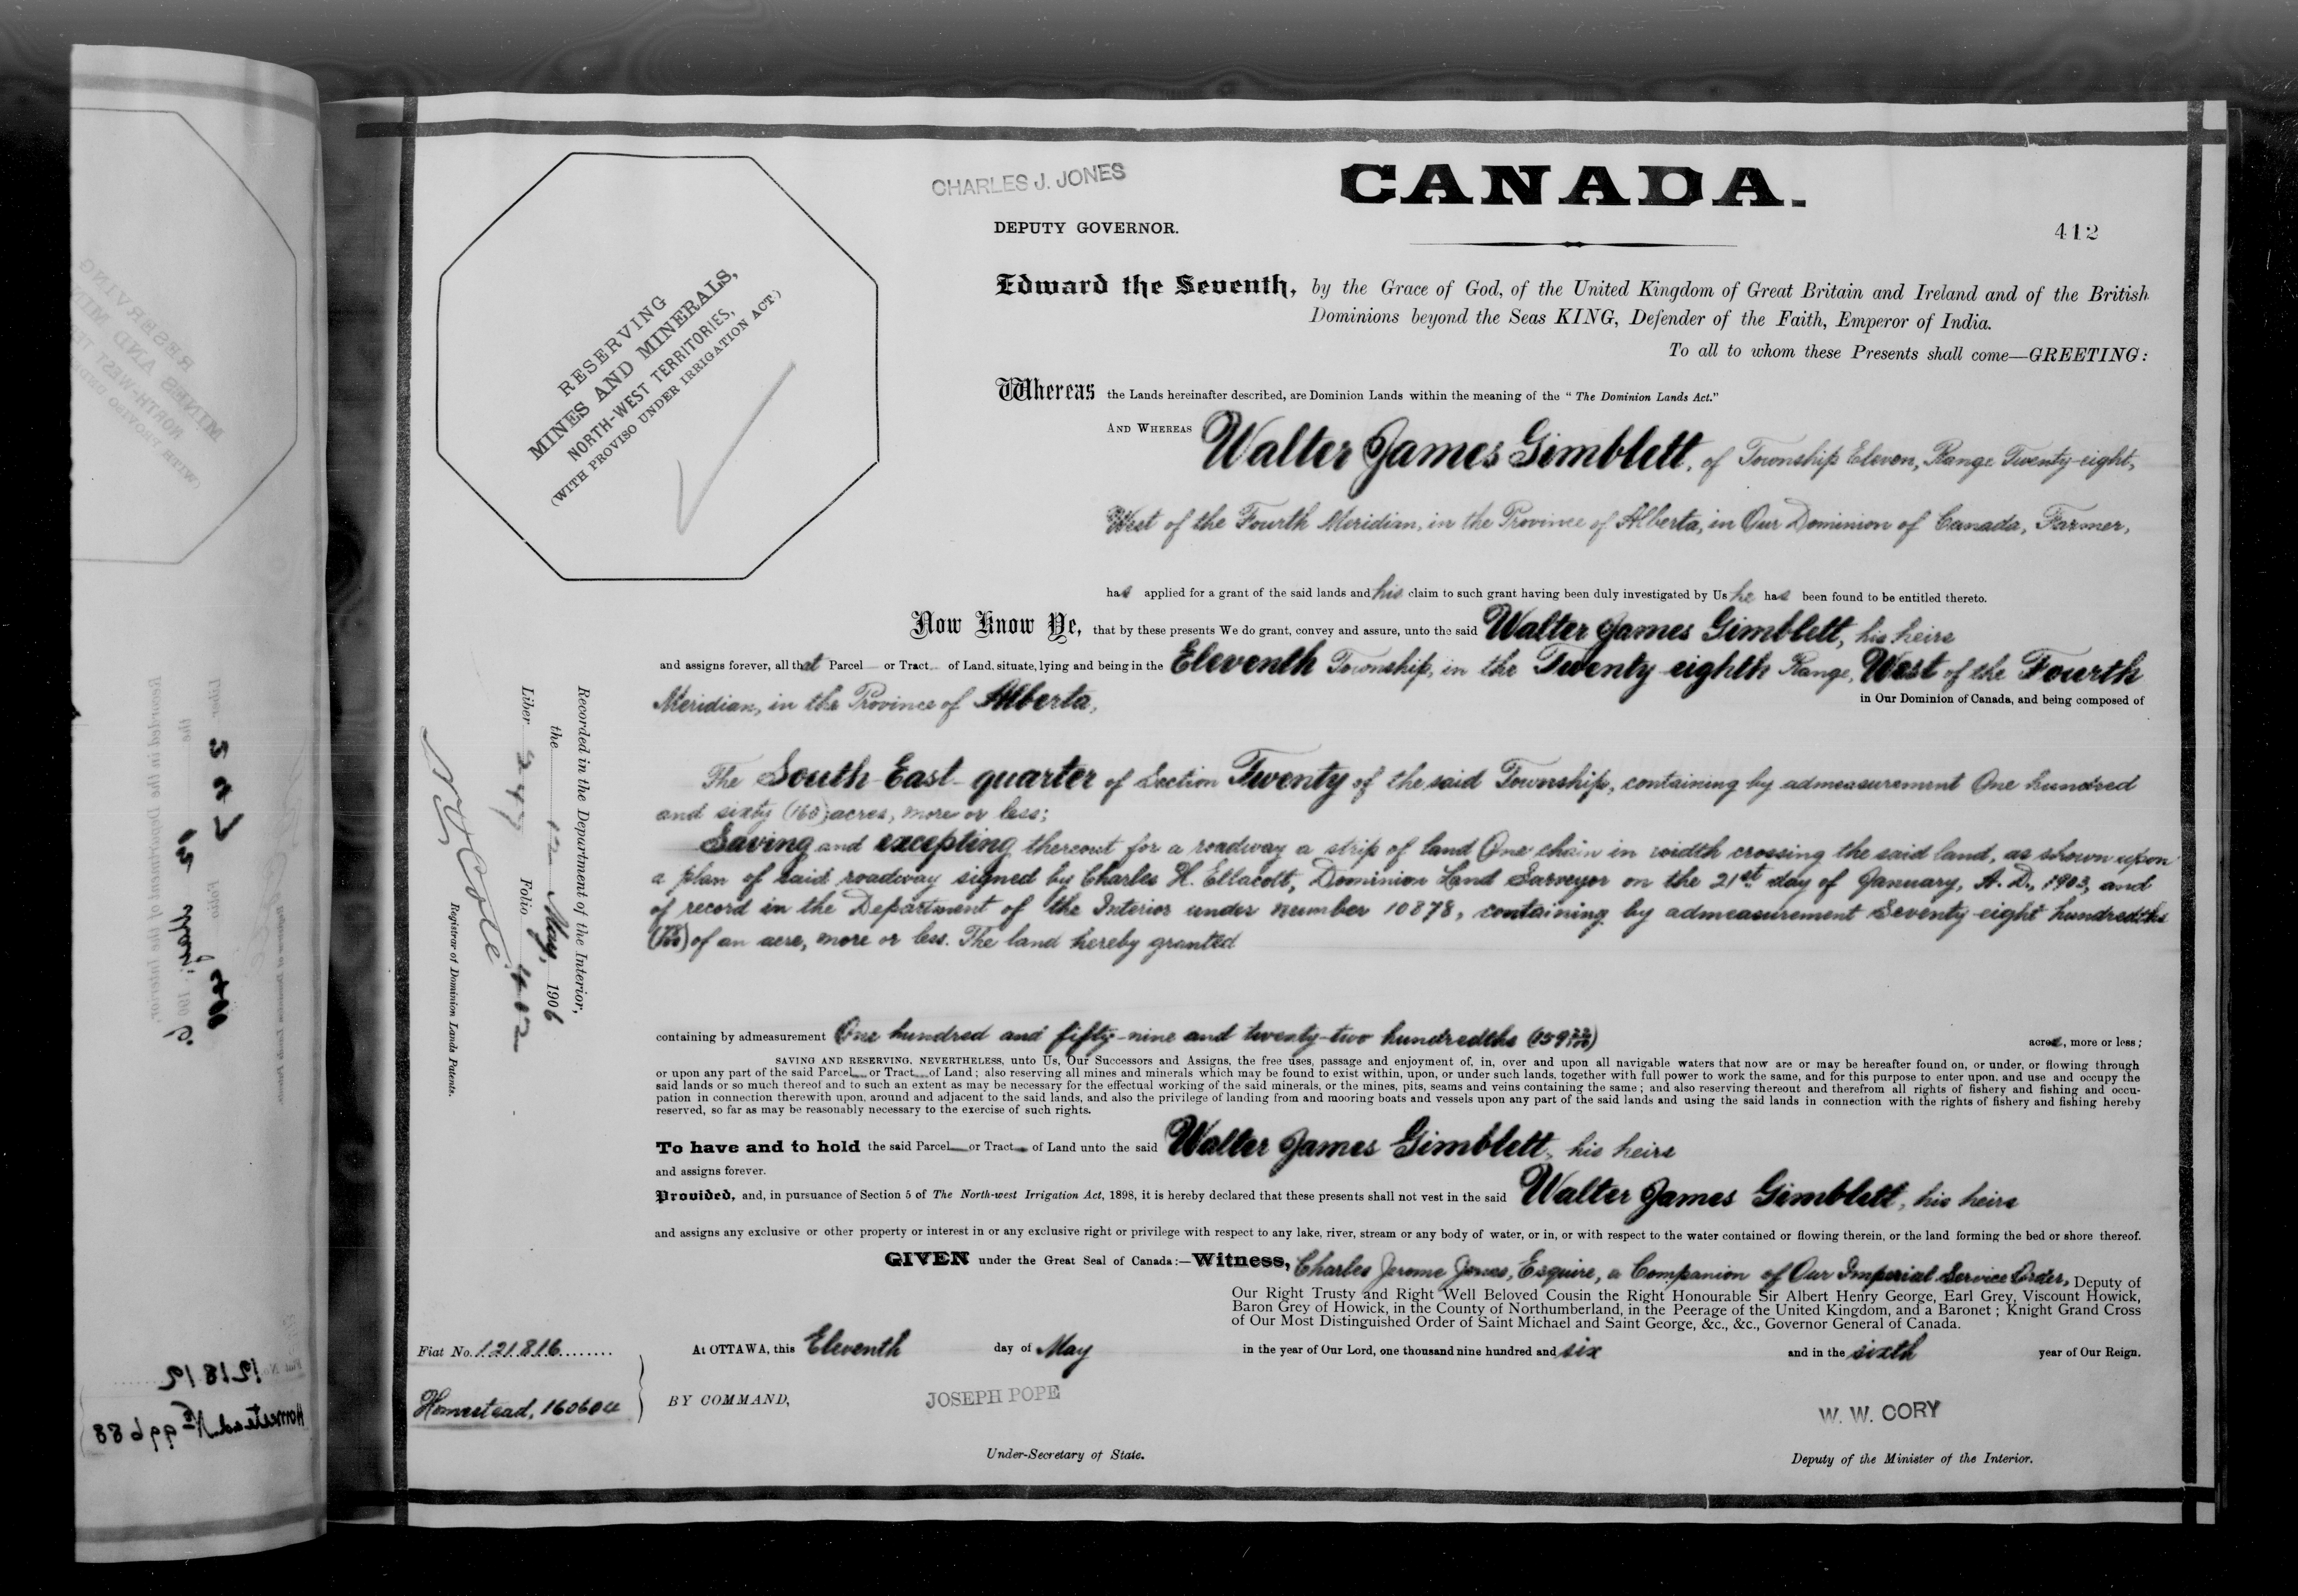 CHARLES J. JONES
CANADA.
DEPUTY GOVERNOR.
412
RESERVING
MINES AND MINERALS,
NORTH-WEST TERRITORIES,
(WITH PROVISO UNDER IRRIGATION ACT)
Edward the Seventh, by the Grace of God, of the United Kingdom of Great Britain and Ireland and of the British
Dominions beyond the Seas KING, Defender of the Faith, Emperor of India.
To all to whom these Presents shall come—GREETING:
Whereas the Lands hereinafter described, are Dominion Lands within the meaning of the "The Dominion Lands Act."
AND WHEREAS Walter James Gimblett, of Township Eleven, Range Twenty-eight,
West of the Fourth Meridian, in the Province of Alberta, in Our Dominion of Canada, Farmer,
has applied for a grant of the said lands and his claim to such grant having been duly investigated by Us he has been found to be entitled thereto.
Now Know Ye, that by these presents We do grant, convey and assure, unto the said Walter James Gimblett, his heirs
and assigns forever, all that Parcel or Tract of Land, situate, lying and being in the Eleventh Township, in the Twenty-eighth Range, West of the Fourth
Meridian, in the Province of Alberta,
in Our Dominion of Canada, and being composed of
The South-East-quarter of Section Twenty of the said Township, containing by admeasurement One hundred
and sixty (160) acres, more or less;
Saving and excepting thereout for a roadway a strip of land One chain in width crossing the said land, as shown upon
a plan of said roadway signed by Charles H. Ellacott, Dominion Land Surveyor on the 21st day of January, A. D., 1903, and
of record in the Department of the Interior under number 10878, containing by admeasurement Seventy-eight hundredths
(78/100) of an acre, more or less. The land hereby granted
containing by admeasurement One hundred and fifty-nine and twenty-two hundredths (159 22/100)
acres, more or less;
SAVING AND RESERVING, NEVERTHELESS, unto Us, Our Successors and Assigns, the free uses, passage and enjoyment of, in, over and upon all navigable waters that now are or may be hereafter found on, or under, or flowing through
or upon any part of the said Parcel or Tract of Land; also reserving all mines and minerals which may be found to exist within, upon, or under such lands, together with full power to work the same, and for this purpose to enter upon, and use and occupy the
said lands or so much thereof and to such an extent as may be necessary for the effectual working of the said minerals, or the mines, pits, seams and veins containing the same; and also reserving thereout and therefrom all rights of fishery and fishing and occu-
pation in connection therewith upon, around and adjacent to the said lands, and also the privilege of landing from and mooring boats and vessels upon any part of the said lands and using the said lands in connection with the rights of fishery and fishing hereby
reserved, so far as may be reasonably necessary to the exercise of such rights.
To have and to hold the said Parcel or Tract of Land unto the said Walter James Gimblett, his heirs
and assigns forever.
Provided, and, in pursuance of Section 5 of The North-west Irrigation Act, 1898, it is hereby declared that these presents shall not vest in the said Walter James Gimblett, his heirs
and assigns any exclusive or other property or interest in or any exclusive right or privilege with respect to any lake, river, stream or any body of water, or in, or with respect to the water contained or flowing therein, or the land forming the bed or shore thereof.
GIVEN under the Great Seal of Canada:—Witness, Charles Jerome Jones, Esquire, a Companion of Our Imperial Service Order, Deputy of
Our Right Trusty and Right Well Beloved Cousin the Right Honourable Sir Albert Henry George, Earl Grey, Viscount Howick,
Baron Grey of Howick, in the County of Northumberland, in the Peerage of the United Kingdom, and a Baronet; Knight Grand Cross
of Our Most Distinguished Order of Saint Michael and Saint George, &c., &c., Governor General of Canada.
At OTTAWA, this Eleventh day of May in the year of Our Lord, one thousand nine hundred and six and in the sixth year of Our Reign.
BY COMMAND,
JOSEPH POPE
Under-Secretary of State.
W. W. CORY
Deputy of the Minister of the Interior.
Fiat No. 121816
Homestead, 160604
Recorded in the Department of the Interior,
the May, 1906
Liber 247 Folio 402
Registrar of Dominion Lands Patents.
121812
Homestead No 99688